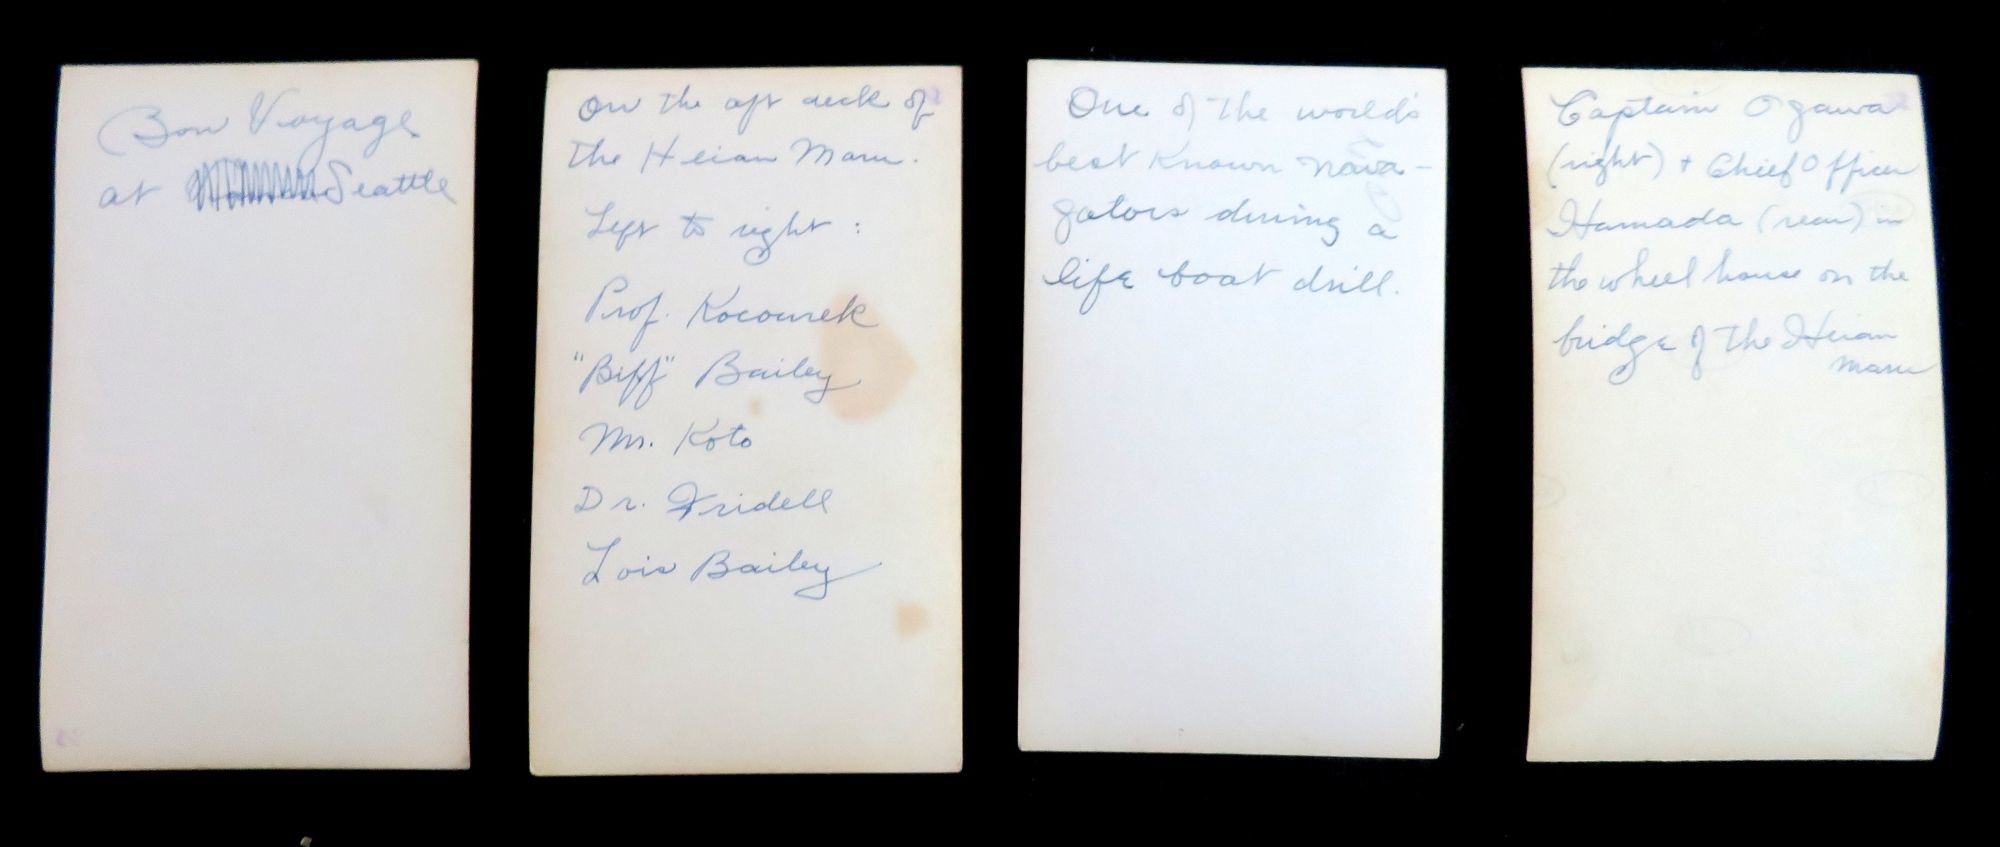 Bon Voyage
at Seattle
On the aft deck of
the Heian Maru.
Left to right :
Prof. Kocourek
"Biff" Bailey
Mr. Koto
Dr. Fridell
Lois Bailey
One of the world's
best known nava-
gators during a
life boat drill.
Captain Ogawa
(right) + Chief Officer
Hamada (rear) in
the wheel house on the
bridge of the Heian
Maru